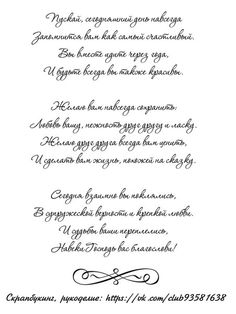 Пускай, сегодняшний день навсегда
Запомнится вам как самый счастливый.
Вы вместе идите через года,
И будьте всегда вы также красивы.
Желаю вам навсегда сохранить:
Любовь вашу, нежность друг к другу и ласку.
Желаю друг друга всегда вам ценить,
И сделать вам жизнь, похожей на сказку.
Сегодня взаимно вы поклялись,
В супружеской верности и крепкой любви.
И судьбы ваши переплелись,
Навеки Господь вас благослови!
Скрапбукинг, рукоделие: https://vk.com/club93581638